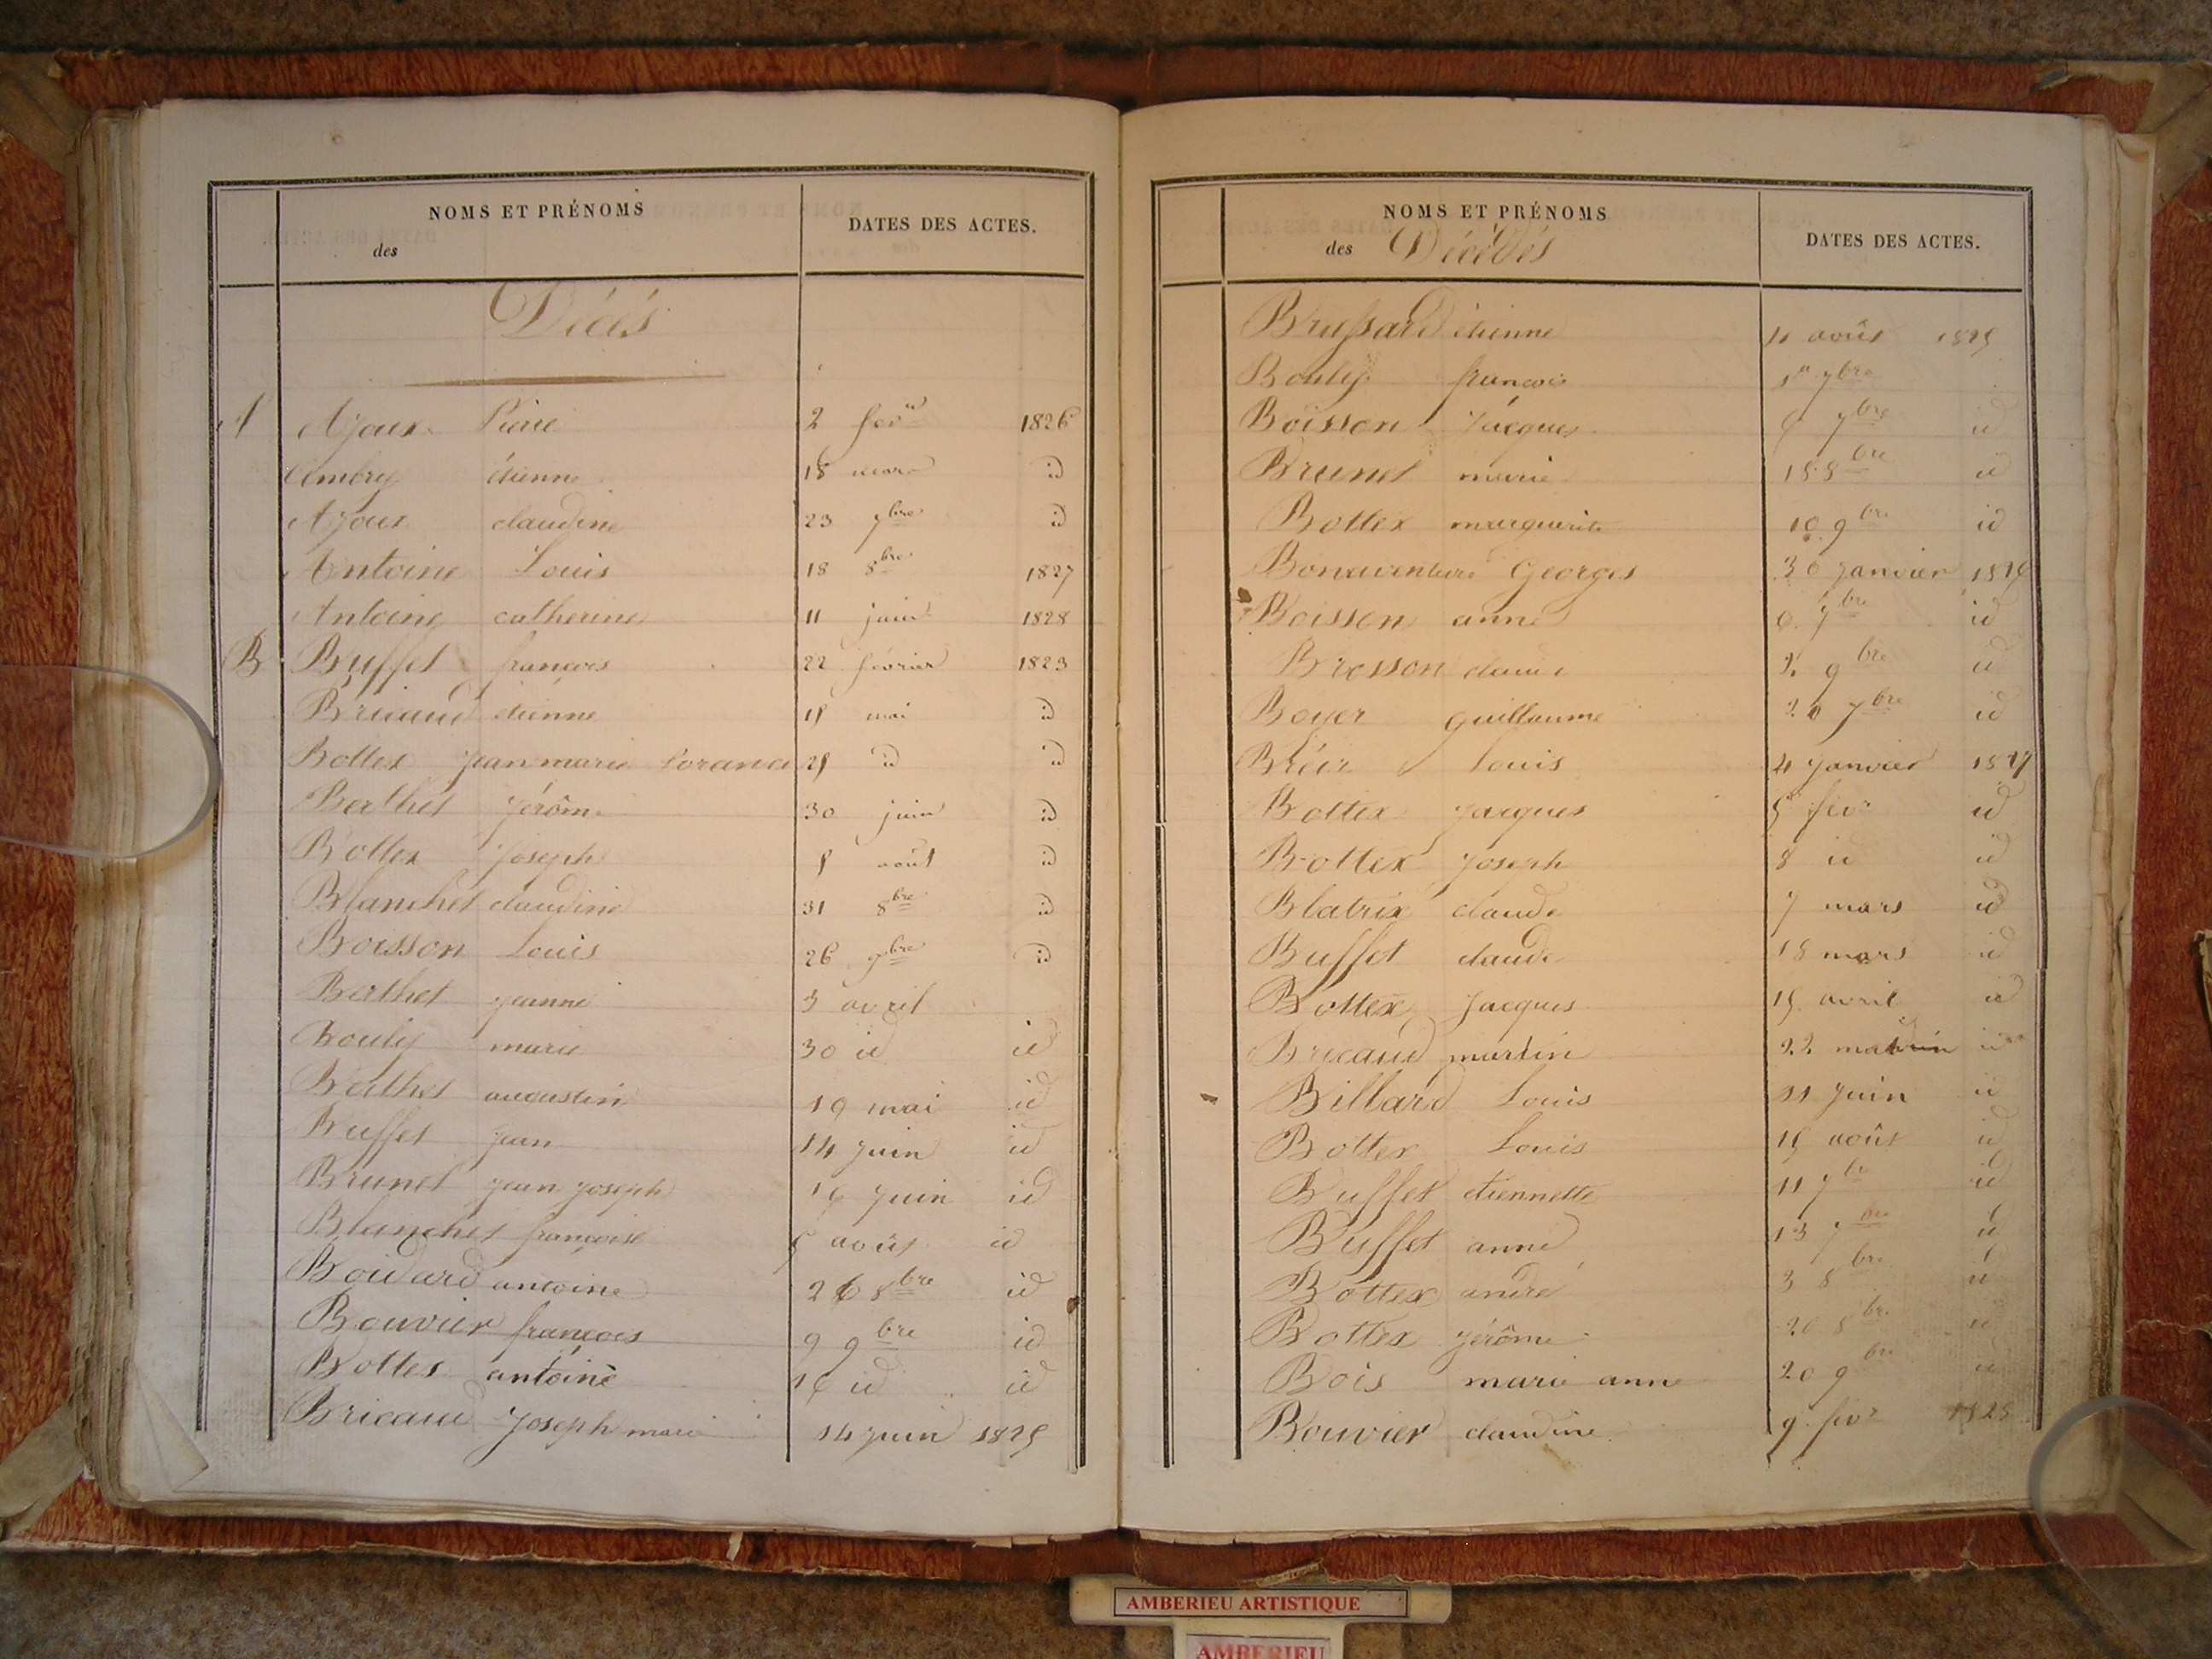 NOMS ET PRÉNOMS
des
DATES DES ACTES.
Décès
A Ajoux Pierre 2 fevr 1826
Ambry étienne 18 mars id
Ajoux claudine 23 7bre id
Antoine Louis 18 8bre 1827
Antoine catherine 11 juin 1828
B Buffet françois 22 février 1823
Bricaud étienne mai id
Bottex jean marie id id
Berthet jérôme 30 juin id
Bottex joseph août id
Blanchet claudine 31 8bre id
Boisson Louis 26 id
Berthet jeanne 3 avril
Bouly marie 30 id id
Berthet augustin 19 mai id
Buffet jean 14 juin id
Brunet jean joseph juin id
Blanchet françoise août id
antoine 26 8bre id
Bouvier françois 9 9bre id
Bottex antoine id id
Bricaud joseph marie 14 juin 1825
NOMS ET PRÉNOMS
des Décédés
DATES DES ACTES.
étienne août 1825
Bouly françois 7bre
Boisson Jacques 7bre id
Brunet marie 8bre id
Bottex marguerite 10 9bre id
Bonaventure Georges 30 janvier
Boisson anne 7bre id
Brosson claude 9bre id
Boyer guillaume 7bre id
Louis 4 janvier 1827
Bottex jacques fevr id
Bottex joseph 8 id id
Blatrix claude 7 mars id
Buffet claude 18 mars id
Bottex jacques avril id
Bricaud martin 22 id
Billard Louis 11 juin id
Bottex Louis août id
Buffet étiennette 11 id
Buffet anne 13 7bre id
Bottex andré 3 8bre id
Bottex jérôme 8bre id
Bois marie anne 20 9bre id
Bouvier claudine 9 fevr 1828
AMBERIEU ARTISTIQUE
AMBERIEU